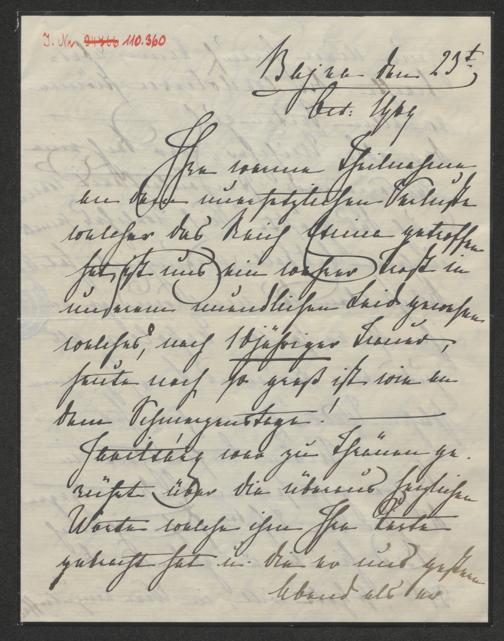 I. Nr. 94766 110.360
Bajna den 23t
Oct. 1909
Ihre warme Theilnahme
an dem unersetzlichen Verluste
welcher das Reich getroffen
hat, ist uns ein wahrer Trost in
unserem unendlichen Leid gewesen
welches, nach 10jähriger Trauer,
heute noch so groß ist wie an
dem Schmerzenstage!
war zu Thränen ge-
rührt über die überaus herzlichen
Worte welche ihm Ihre Karte
gebracht hat u. die er uns gestern
Abend als er